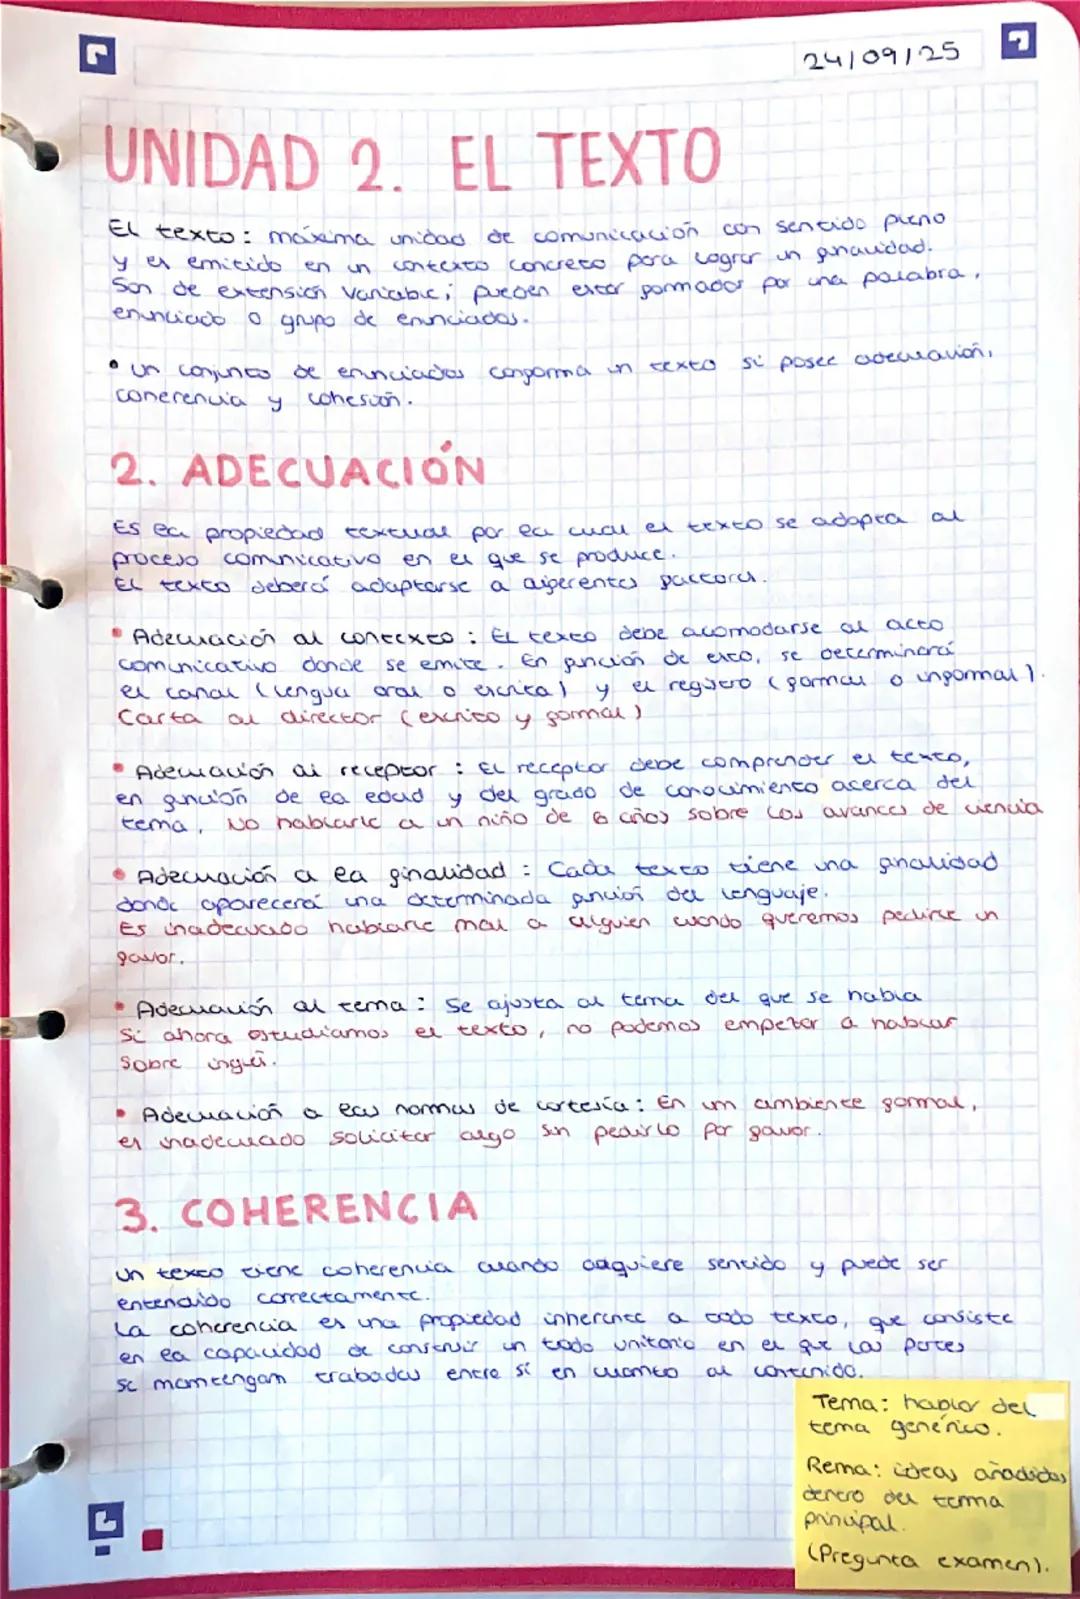 24/09/25
UNIDAD 2. EL TEXTO
El texto: máxima unidad de comunicación con sentido pleno
y es emitido en un contexto concreto para lograr un finalidad.
Son de extensión variable; pueden estar formados por una palabra,
enunciado o grupo de enunciados.
• Un conjunto de enunciados conforma un texto si posee adecuación,
coherencia y cohesión.
2. ADECUACIÓN
Es la propiedad textual por la cual el texto se adapta al
proceso comunicativo en el que se produce.
El texto deberá adaptarse a diferentes factores.
• Adecuación al contexto: El texto debe acomodarse al acto
comunicativo donde se emite. En función de esto, se determinará
el canal (lengua oral o escrita) y el registro (formal o informal).
Carta al director (escrito y formal)
• Adecuación al receptor: El receptor debe comprender el texto,
en función de la edad y del grado de conocimiento acerca del
tema. No hablarle a un niño de 6 años sobre los avances de ciencia
• Adecuación a la finalidad: Cada texto tiene una finalidad
donde aparecerá una determinada función del lenguaje.
Es inadecuado hablarle mal a alguien cuando queremos pedirle un
favor.
• Adecuación al tema: Se ajusta al tema del que se habla
Si ahora estudiamos el texto, no podemos empezar a hablar
sobre inglés.
• Adecuación a las normas de cortesía: En un ambiente formal,
es inadecuado solicitar algo sin pedirlo por favor.
3. COHERENCIA
Un texto tiene coherencia cuando adquiere sentido y puede ser
entendido correctamente.
La coherencia es una propiedad inherente a todo texto, que consiste
en la capacidad de construir un todo unitario en el que las partes
se mantengan trabadas entre sí en cuanto al contenido.
Tema: hablar del
tema genérico.
Rema: ideas añadidas
dentro del tema
principal.
(Pregunta examen).